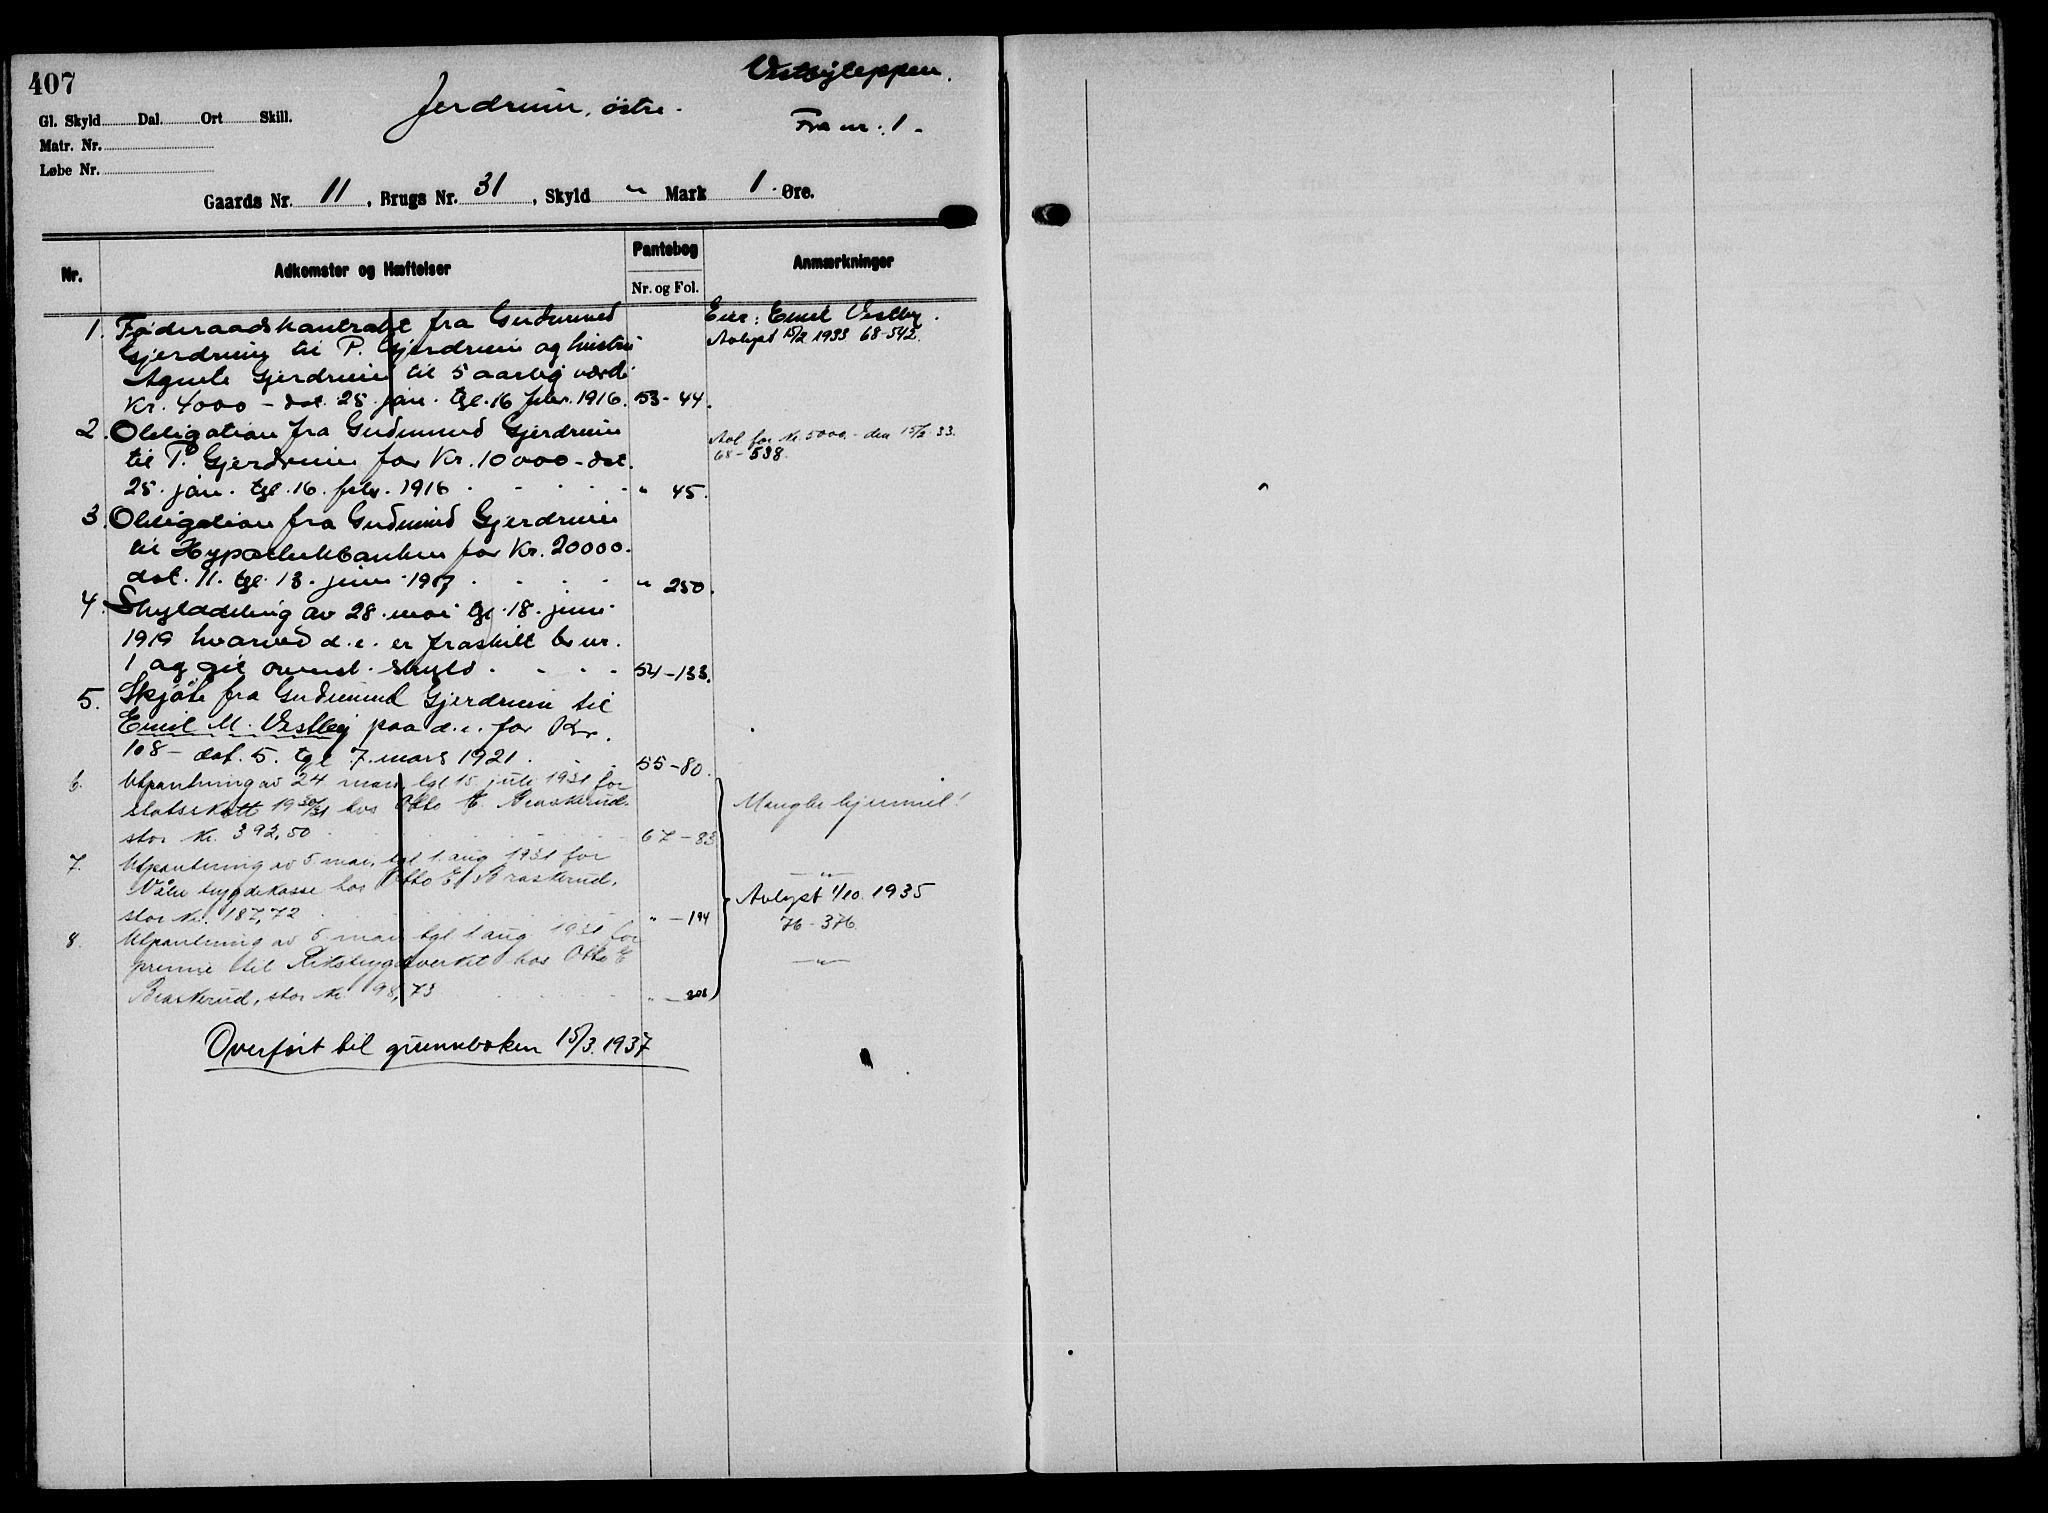 407
Vestbyteppen.
Jerdrum, østre.
Fra nr. 1.
Gl. Skyld Dal. Ort Skill.
Matr. Nr.
Løbe Nr.
Gaards Nr. 11, Brugs Nr. 31, Skyld " Mark 1. Øre.
Nr. Adkomster og Hæftelser Pantebog Anmærkninger
Nr. og Fol.
1. Føderaadskontrakt fra Gudmund Eier: Emil Vestby.
Gjerdrum til P. Gjerdrum og hustru Avlyst 15/2 1933 68-542.
Agnete Gjerdrum til 5 aarlig værdi
Kr. 4000 – dat. 25. jan. tgl. 16 febr. 1916. 53-44.
2. Obligation fra Gudmund Gjerdrum Avl for kr. 5000.- den 15/2-33.
til P. Gjerdrum for Kr. 10000 – dat. 68-538.
25. jan. tgl. 16. febr. 1916 " 45.
3. Obligation fra Gudmund Gjerdrum
til Hypothekbanken for Kr. 20000.
dat. 11. tgl. 13. juni 1917 " 250.
4. Skylddeling av 28. mai tgl. 18. juni
1919 hvorved d. e. er fraskilt br nr.
1 og git ovenst. skyld. 54-133.
5. Skjøte fra Gudmund Gjerdrum til
Emil M. Vestby paa d. e. for Kr.
108 – dat. 5. tgl 7. mars 1921. 55-80.
6. Utpantning av 24 mars tgl 15 juli 1931 for
statsskatt 1930/31 hos Otto E. Braskerud Mangler hjemmel!
stor kr. 392,50 67-83
7. Utpantning av 5 mai, tgl 1 aug 1931 for
Våler trygdekasse hos Otto E. Braskerud, "
stor kr. 187,72 " - 194 Avlyst 1/10. 1935
8. Utpantning av 5 mai tgl 1 aug 1931 for 76-376.
premie til Rikstrygdeverket hos Otto E "
Braskerud, stor kr 98,73 "
Overført til grunnboken 15/3. 1937